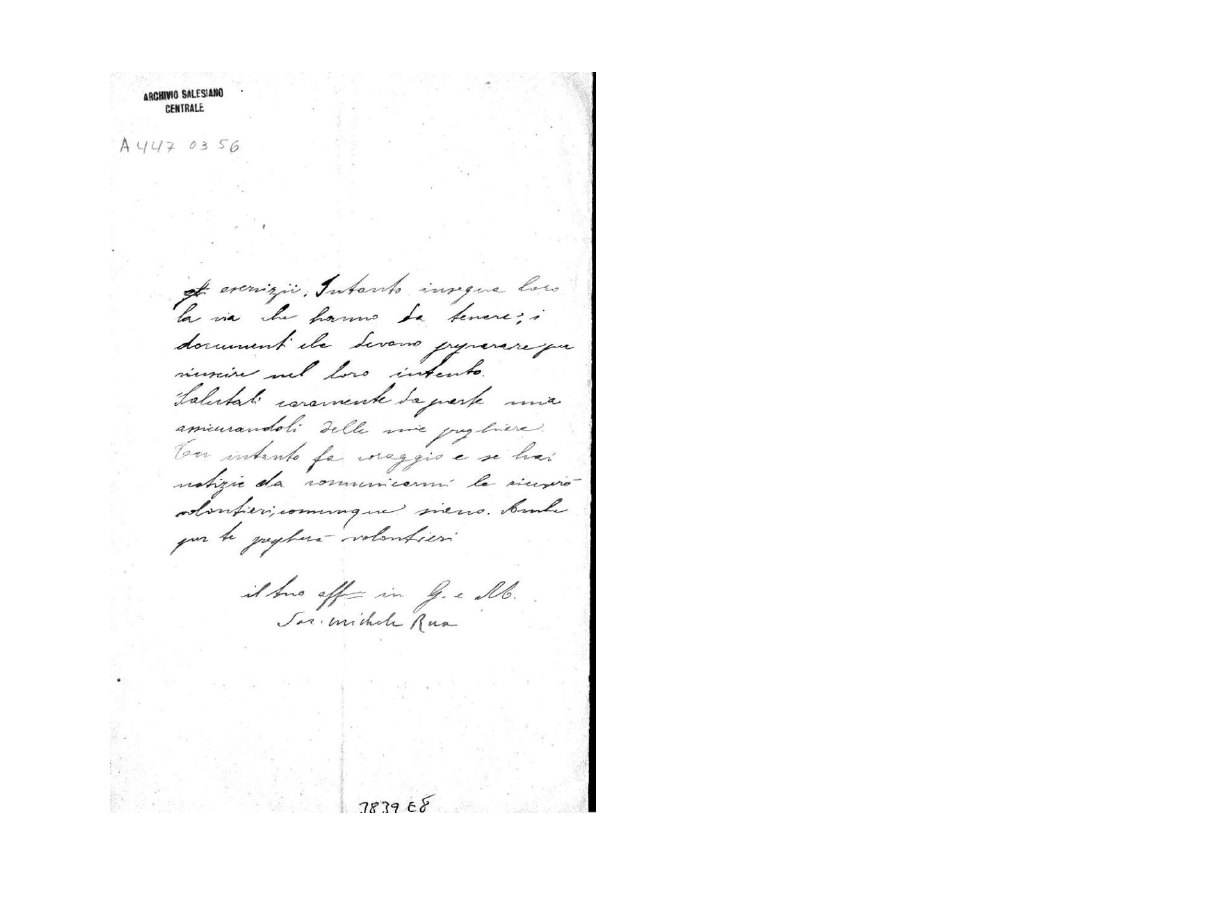 ARCHIVIO SALESIANO
CENTRALE
A 447 03 56
esercizii. Intanto insegna loro
la via che hanno da tenere; i
documenti che devono preparare per
riuscire nel loro intento.
Salutali caramente da parte mia
assicurandoli delle mie preghiere
Tu intanto fa coraggio e se hai
notizie da comunicarmi le riceverò
volontieri, comunque sieno. Anche
per te pregherà volontieri
il tuo aff in G. e M.
Sac. Michele Rua
3839 E8